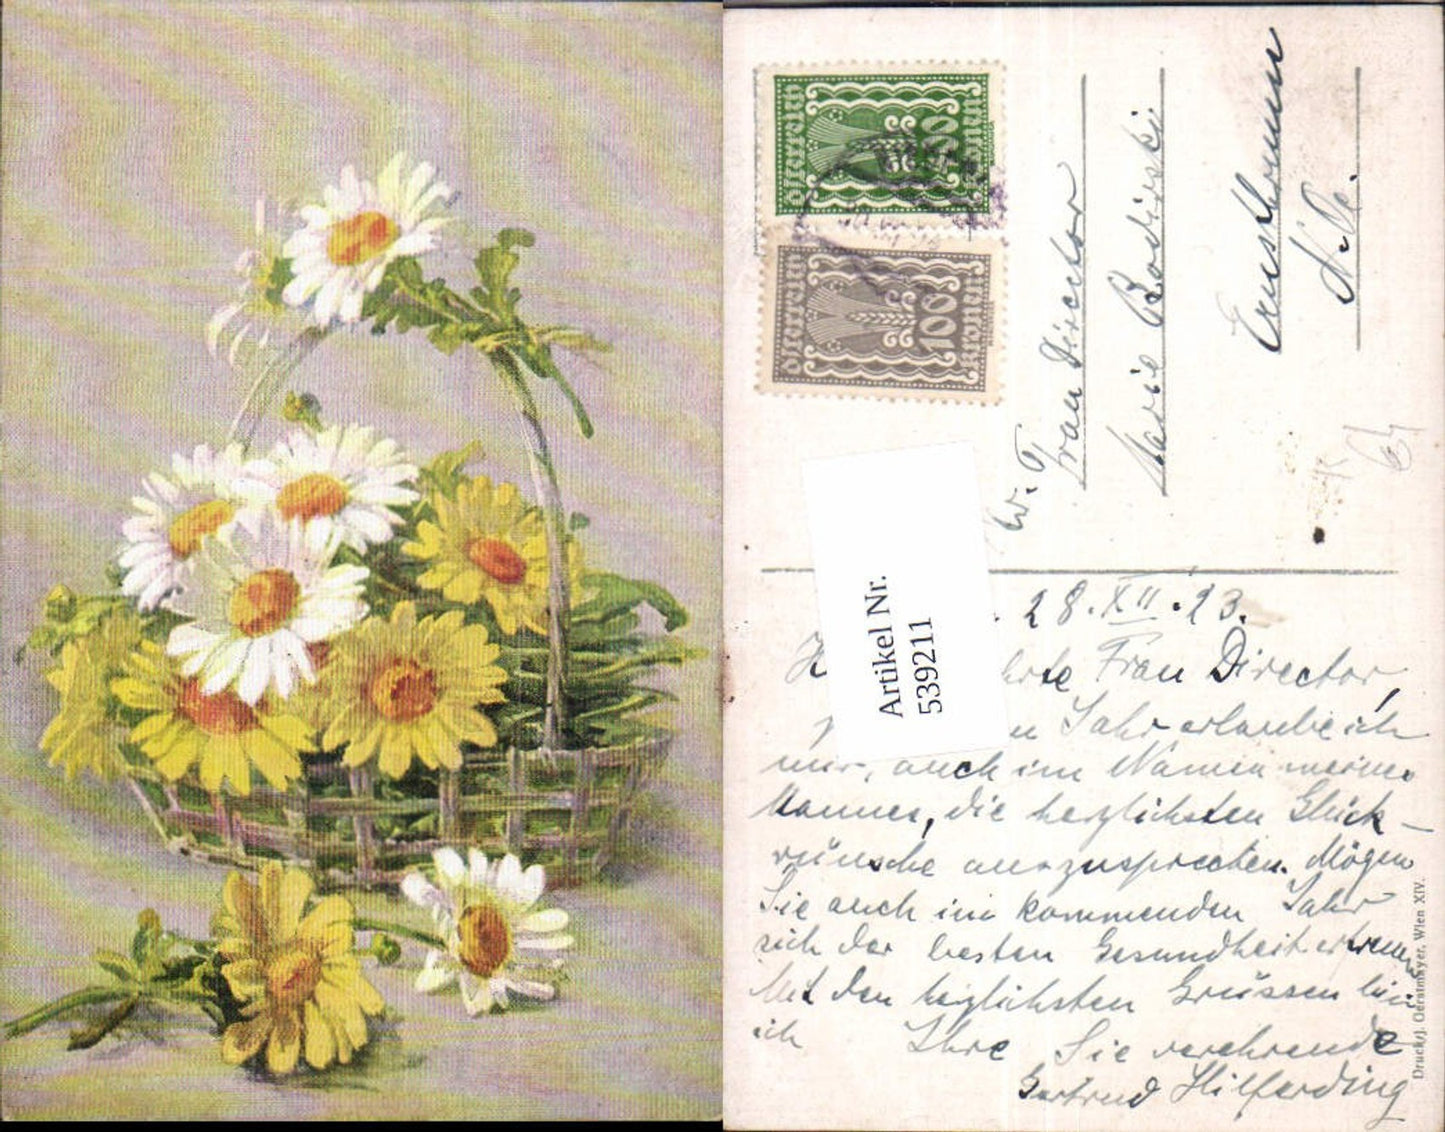 Österreich
400
Kronen
Österreich
100
Kronen
Frau Director
Marie Bodirski
N.Ö.
Artikel Nr.
539211
28.XII.23.
Frau Director,
Jahr erlaube ich
mir, auch im Namen meines
Mannes, die herzlichsten Glück-
wünsche auszusprechen. Mögen
Sie auch im kommenden Jahr
sich der besten Gesundheit erfreuen
Mit den herzlichsten Grüssen bin
ich Ihre Sie verehrende
Gertrud Hilferding
Druck: J. Gerstmayer, Wien XIV.